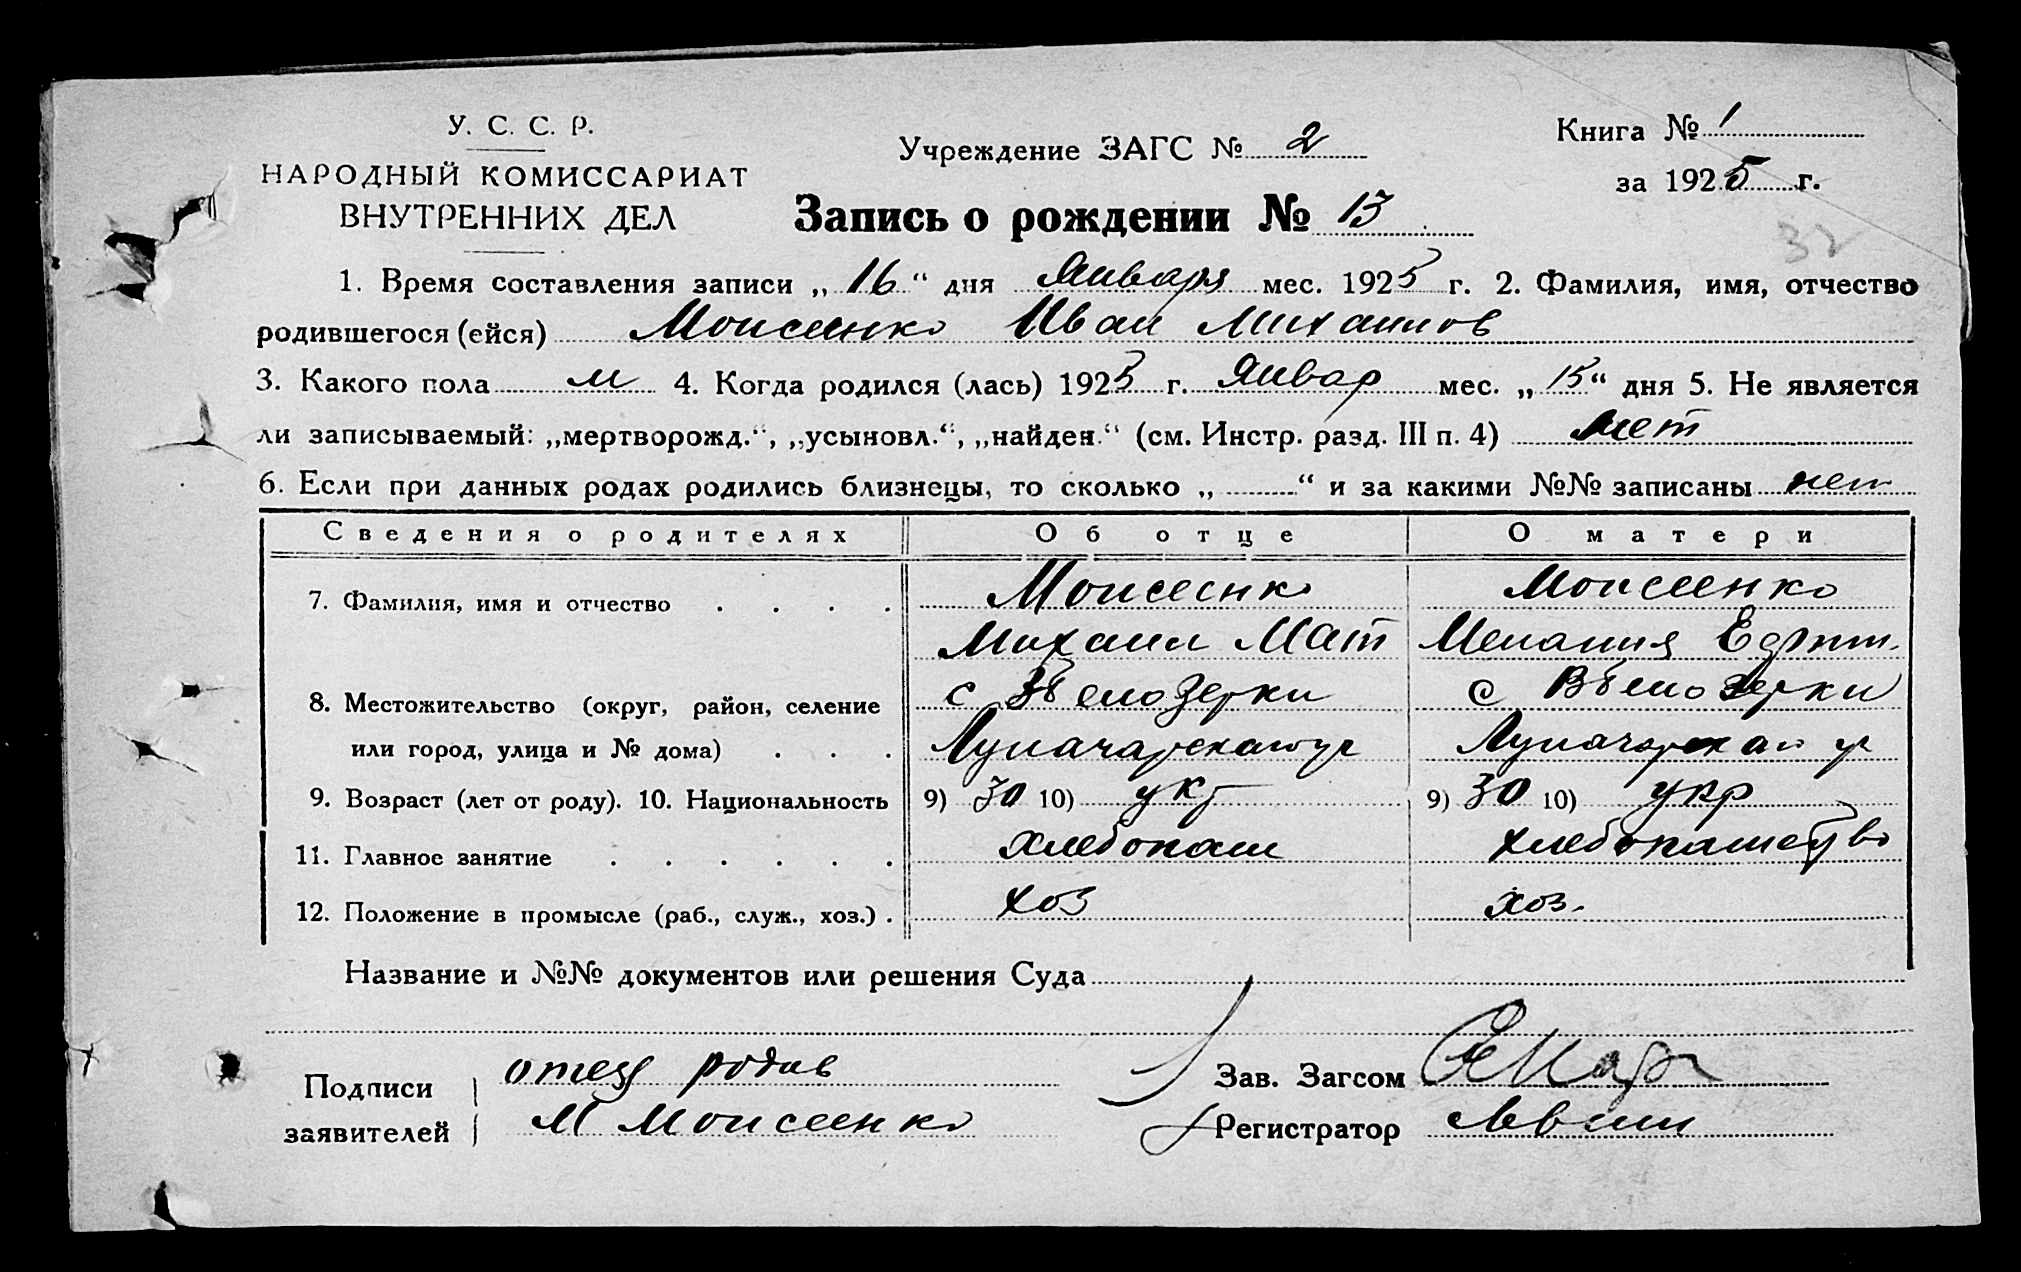 У. С. С. Р.
НАРОДНЫЙ КОМИССАРИАТ
ВНУТРЕННИХ ДЕЛ
Учреждение ЗАГС № 2
Книга № 1
за 1925 г.
32
Запись о рождении № 13
1. Время составления записи „16“ дня Января мес. 1925 г. 2. Фамилия, имя, отчество
родившегося (ейся) Моисеенко Иван Михаилов
3. Какого пола м 4. Когда родился (лась) 1925 г. Январ мес. „15“ дня 5. Не является
ли записываемый: „мертворожд.“, „усыновл.“, „найден.“ (см. Инстр. разд. III п. 4) нет
6. Если при данных родах родились близнецы, то сколько „ “ и за какими №№ записаны нет
Сведения о родителях Об отце О матери
7. Фамилия, имя и отчество Моисеенко Моисеенко
Михаил Мат Мелания
8. Местожительство (округ, район, селение с Белозерки с Белозерки
или город, улица и № дома) Луначарская ул Луначарская ул
9. Возраст (лет от роду). 10. Национальность 9) 30 10) укр 9) 30 10) укр
11. Главное занятие хлебопаш хлебопашество
12. Положение в промысле (раб., служ., хоз.) хоз хоз.
Название и №№ документов или решения Суда
Подписи заявителей
отец
М Моисеенко
Зав. Загсом
Регистратор Левин